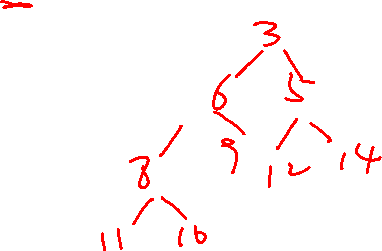 3
6 5
8 9 12 14
11 10